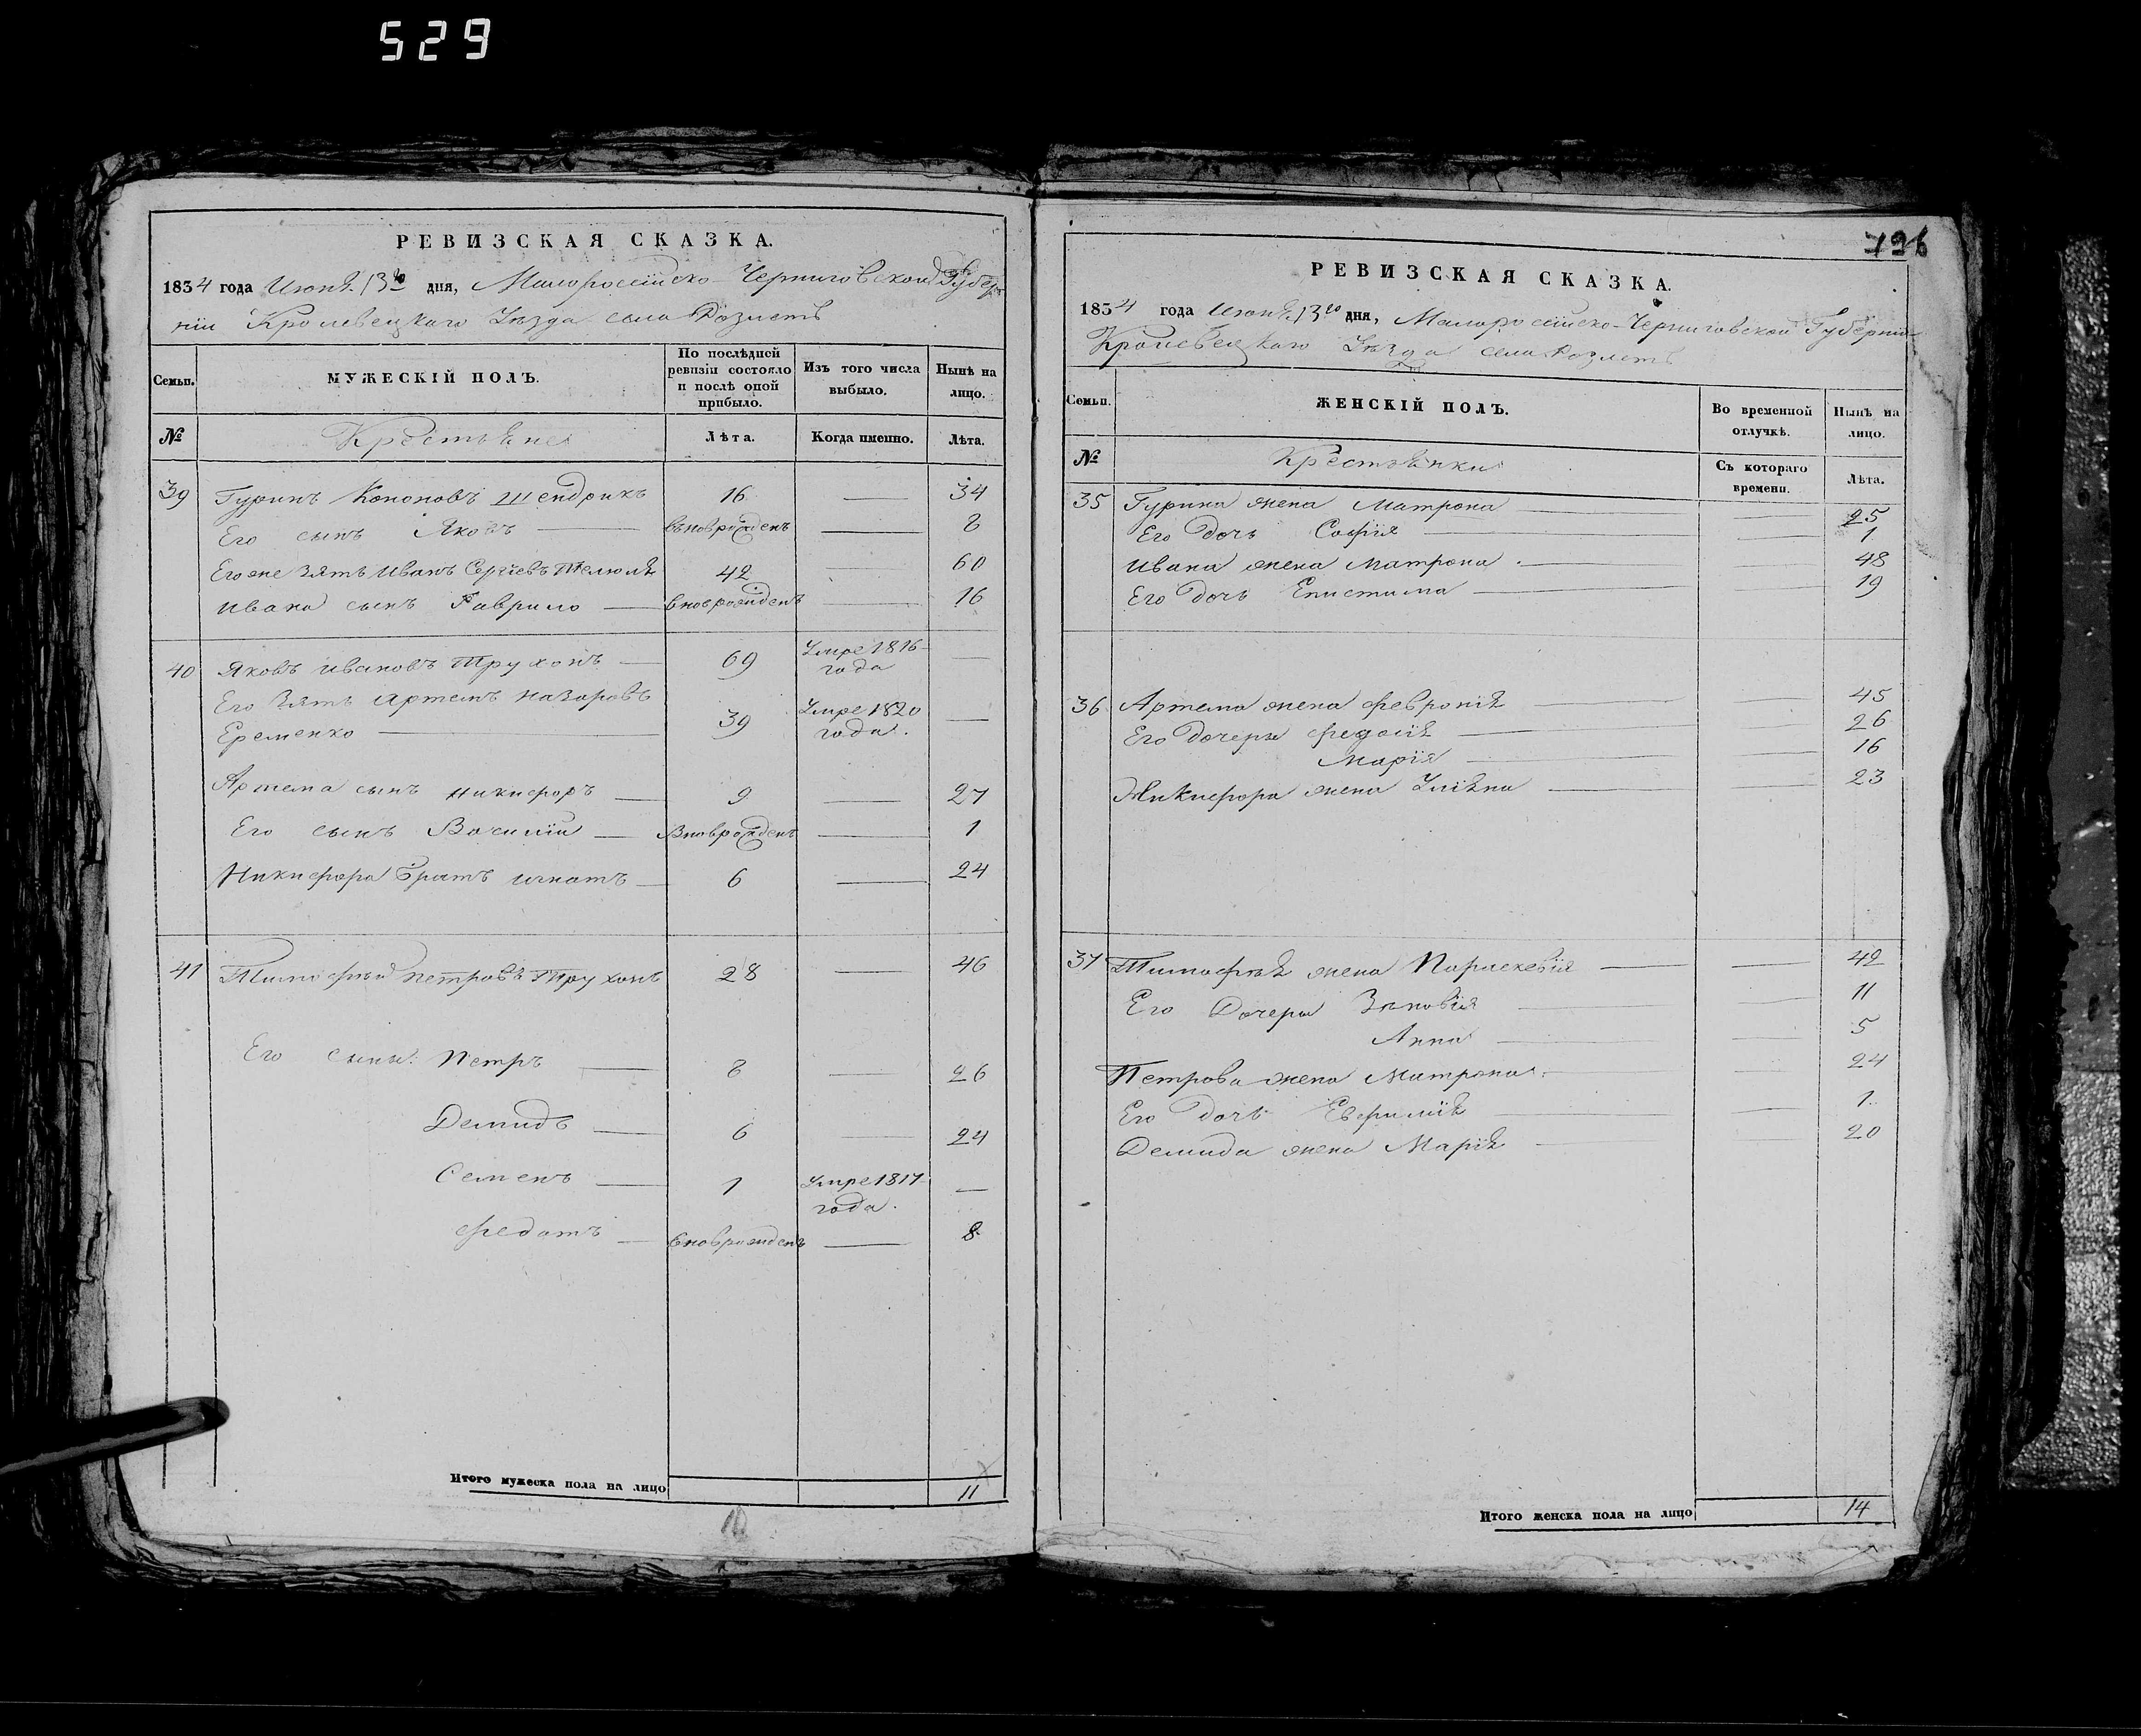 529
РЕВИЗСКАЯ СКАЗКА.
1834 года Июня 13го дня, Малоросійско-Черниговской Губер
ніи Кролевецкаго Уѣзда села Rозлетъ
Семьи.
МУЖЕСКІЙ ПОЛЪ.
По послѣдней ревизіи состояло и послѣ оной прибыло.
Изъ того числа выбыло.
Нынѣ на лицо.
№
Крестьяне
Лѣта.
Когда именно.
Лѣта.
39 Гуринъ Кононовъ Шендрикъ 16 — 34
Его сынъ Яковъ — вновьрожденъ — 8
Его же Зять Иванъ Сергіевъ 42 — 60
Ивана сынъ Гаврило — вновьрожденъ — 16
40 Яковъ Ивановъ Трухонъ — 69 Умре 1816 —
года
Его Зять Артемъ Назаровъ
Еременко — 39 Умре 1820 —
года.
Артема сынъ Никифоръ — 9 — 27
Его сынъ Василій — Вновьрожденъ — 1
Никифора Братъ Игнатъ — 6 — 24
41 Тимофѣй Петровъ Трухонъ 28 — 46
Его сыны: Петръ — 8 — 26
Демидъ — 6 — 24
Семенъ — 1 Умре 1817 —
года.
Федотъ — вновьрожденъ — 8
Итого мужеска пола на лицо 11
796
РЕВИЗСКАЯ СКАЗКА.
1834 года Июня 13го дня, Малоросійско-Черниговской Губерніи
Кролевецкаго Уѣзда села
Семьи.
ЖЕНСКІЙ ПОЛЪ.
Во временной отлучкѣ.
Нынѣ на лицо.
№
Крестьянки
Съ котораго времени.
Лѣта.
35 Гурина жена Матрона — — 25
Его дочь Софія — — 1
Ивана жена Матрона — — 48
Его дочь Епистима — — 19
36 Артема жена Февронія — — 45
Его дочери Федосія — — 26
Марія — — 16
Никифора жена Уліяна — — 23
37 Тимофѣя жена Параскевія — — 42
Его Дочери Зѣновія — — 11
Анна — — 5
Петрова жена Матрона — — 24
Его дочь Евфимія — — 1
Демида жена Марія — — 20
Итого женска пола на лицо 14